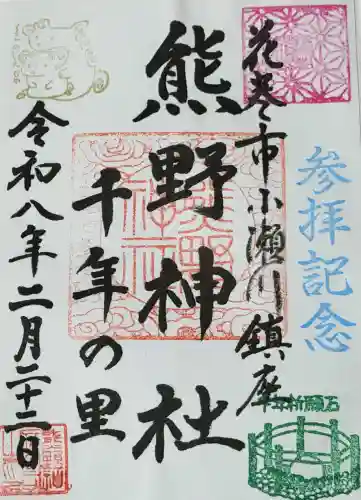 参拝記念
花巻市小瀬川鎮座
熊野神社
千年の里
令和八年二月二十二日